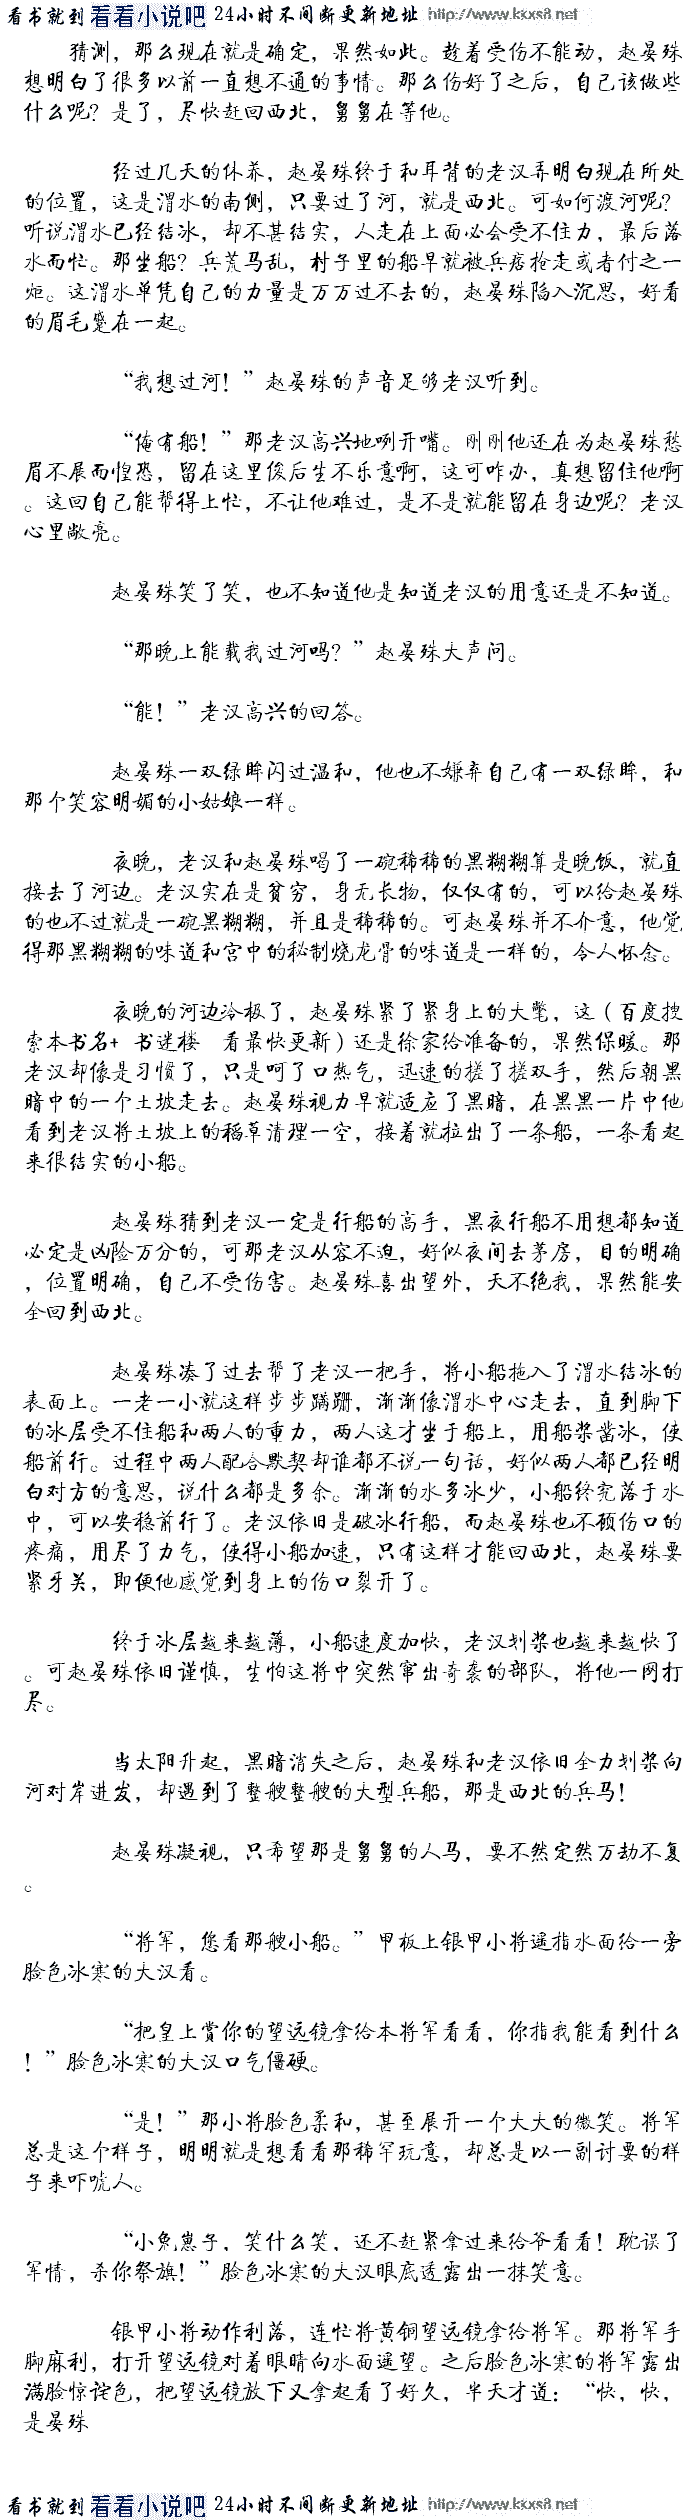 看书就到 看看小说吧 24小时不间断更新地址 http://www.kkxs8.net
猜测，那么现在就是确定，果然如此。趁着受伤不能动，赵晏殊
想明白了很多以前一直想不通的事情。那么伤好了之后，自己该做些
什么呢？是了，尽快赶回西北，舅舅在等他。
经过几天的休养，赵晏殊终于和耳背的老汉弄明白现在所处
的位置，这是渭水的南侧，只要过了河，就是西北。可如何渡河呢？
听说渭水已经结冰，却不甚结实，人走在上面必会受不住力，最后落
水而忙。那坐船？兵荒马乱，村子里的船早就被兵痞抢走或者付之一
炬。这渭水单凭自己的力量是万万过不去的，赵晏殊陷入沉思，好看
的眉毛蹙在一起。
“我想过河！”赵晏殊的声音足够老汉听到。
“俺有船！”那老汉高兴地咧开嘴。刚刚他还在为赵晏殊愁
眉不展而惶恐，留在这里俊后生不乐意啊，这可咋办，真想留住他啊
。这回自己能帮得上忙，不让他难过，是不是就能留在身边呢？老汉
心里敞亮。
赵晏殊笑了笑，也不知道他是知道老汉的用意还是不知道。
“那晚上能载我过河吗？”赵晏殊大声问。
“能！”老汉高兴的回答。
赵晏殊一双绿眸闪过温和，他也不嫌弃自己有一双绿眸，和
那个笑容明媚的小姑娘一样。
夜晚，老汉和赵晏殊喝了一碗稀稀的黑糊糊算是晚饭，就直
接去了河边。老汉实在是贫穷，身无长物，仅仅有的，可以给赵晏殊
的也不过就是一碗黑糊糊，并且是稀稀的。可赵晏殊并不介意，他觉
得那黑糊糊的味道和宫中的秘制烧龙骨的味道是一样的，令人怀念。
夜晚的河边冷极了，赵晏殊紧了紧身上的大氅，这（百度搜
索本书名+ 书迷楼 看最快更新）还是徐家给准备的，果然保暖。那
老汉却像是习惯了，只是呵了口热气，迅速的搓了搓双手，然后朝黑
暗中的一个土坡走去。赵晏殊视力早就适应了黑暗，在黑黑一片中他
看到老汉将土坡上的稻草清理一空，接着就拉出了一条船，一条看起
来很结实的小船。
赵晏殊猜到老汉一定是行船的高手，黑夜行船不用想都知道
必定是凶险万分的，可那老汉从容不迫，好似夜间去茅房，目的明确
，位置明确，自己不受伤害。赵晏殊喜出望外，天不绝我，果然能安
全回到西北。
赵晏殊凑了过去帮了老汉一把手，将小船拖入了渭水结冰的
表面上。一老一小就这样步步蹒跚，渐渐像渭水中心走去，直到脚下
的冰层受不住船和两人的重力，两人这才坐于船上，用船桨凿冰，使
船前行。过程中两人配合默契却谁都不说一句话，好似两人都已经明
白对方的意思，说什么都是多余。渐渐的水多冰少，小船终究落于水
中，可以安稳前行了。老汉依旧是破冰行船，而赵晏殊也不顾伤口的
疼痛，用尽了力气，使得小船加速，只有这样才能回西北，赵晏殊要
紧牙关，即便他感觉到身上的伤口裂开了。
终于冰层越来越薄，小船速度加快，老汉划桨也越来越快了
。可赵晏殊依旧谨慎，生怕这将中突然窜出奇袭的部队，将他一网打
尽。
当太阳升起，黑暗消失之后，赵晏殊和老汉依旧全力划桨向
河对岸进发，却遇到了整艘整艘的大型兵船，那是西北的兵马！
赵晏殊凝视，只希望那是舅舅的人马，要不然定然万劫不复
。
“将军，您看那艘小船。”甲板上银甲小将遥指水面给一旁
脸色冰寒的大汉看。
“把皇上赏你的望远镜拿给本将军看看，你指我能看到什么
！”脸色冰寒的大汉口气僵硬。
“是！”那小将脸色柔和，甚至展开一个大大的微笑。将军
总是这个样子，明明就是想看看那稀罕玩意，却总是以一副讨要的样
子来吓唬人。
“小兔崽子，笑什么笑，还不赶紧拿过来给爷看看！耽误了
军情，杀你祭旗！”脸色冰寒的大汉眼底透露出一抹笑意。
银甲小将动作利落，连忙将黄铜望远镜拿给将军。那将军手
脚麻利，打开望远镜对着眼睛向水面遥望。之后脸色冰寒的将军露出
满脸惊诧色，把望远镜放下又拿起看了好久，半天才道：“快，快，
是晏殊
看书就到 看看小说吧 24小时不间断更新地址 http://www.kkxs8.net